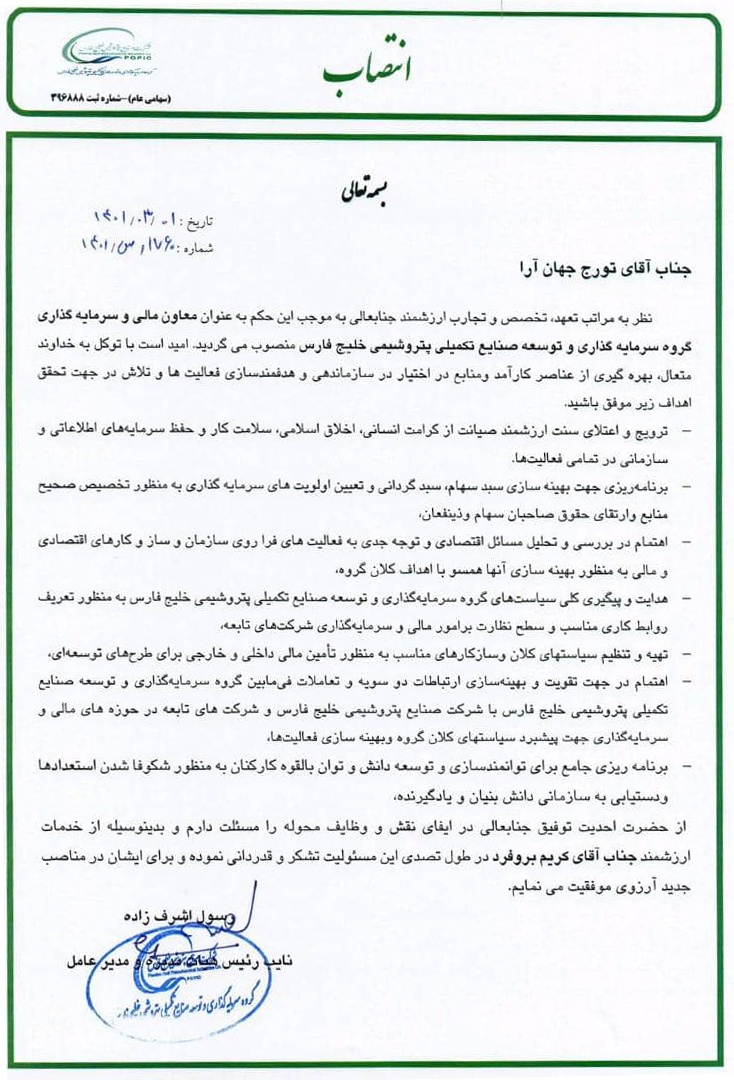 انتصاب
PGPIC
(سهامی عام)-شماره ثبت ۳۹۶۸۸۸
بسمه تعالی
تاریخ : ۱۴۰۱/۰۳/۰۱
شماره :
جناب آقای تورج جهان آرا
نظر به مراتب تعهد، تخصص و تجارب ارزشمند جنابعالی به موجب این حکم به عنوان معاون مالی و سرمایه گذاری
گروه سرمایه گذاری و توسعه صنایع تکمیلی پتروشیمی خلیج فارس منصوب می گردید. امید است با توکل به خداوند
متعال، بهره گیری از عناصر کارآمد ومنابع در اختیار در سازماندهی و هدفمندسازی فعالیت ها و تلاش در جهت تحقق
اهداف زیر موفق باشید.
- ترویج و اعتلای سنت ارزشمند صیانت از کرامت انسانی، اخلاق اسلامی، سلامت کار و حفظ سرمایه‌های اطلاعاتی و
سازمانی در تمامی فعالیت‌ها.
- برنامه‌ریزی جهت بهینه سازی سبد سهام، سبد گردانی و تعیین اولویت های سرمایه گذاری به منظور تخصیص صحیح
منابع وارتقای حقوق صاحبان سهام وذینفعان،
- اهتمام در بررسی و تحلیل مسائل اقتصادی و توجه جدی به فعالیت های فرا روی سازمان و ساز و کارهای اقتصادی
و مالی به منظور بهینه سازی آنها همسو با اهداف کلان گروه،
- هدایت و پیگیری کلی سیاست‌های گروه سرمایه‌گذاری و توسعه صنایع تکمیلی پتروشیمی خلیج فارس به منظور تعریف
روابط کاری مناسب و سطح نظارت برامور مالی و سرمایه‌گذاری شرکت‌های تابعه،
- تهیه و تنظیم سیاستهای کلان وسازکارهای مناسب به منظور تأمین مالی داخلی و خارجی برای طرح‌های توسعه‌ای،
- اهتمام در جهت تقویت و بهینه‌سازی ارتباطات دو سویه و تعاملات فی‌مابین گروه سرمایه‌گذاری و توسعه صنایع
تکمیلی پتروشیمی خلیج فارس با شرکت صنایع پتروشیمی خلیج فارس و شرکت های تابعه در حوزه های مالی و
سرمایه‌گذاری جهت پیشبرد سیاستهای کلان گروه وبهینه سازی فعالیت‌ها،
- برنامه ریزی جامع برای توانمندسازی و توسعه دانش و توان بالقوه کارکنان به منظور شکوفا شدن استعدادها
ودستیابی به سازمانی دانش بنیان و یادگیرنده،
از حضرت احدیت توفیق جنابعالی در ایفای نقش و وظایف محوله را مسئلت دارم و بدینوسیله از خدمات
ارزشمند جناب آقای کریم بروفرد در طول تصدی این مسئولیت تشکر و قدردانی نموده و برای ایشان در مناصب
جدید آرزوی موفقیت می نمایم.
رسول اشرف زاده
نایب رئیس هیات مدیره و مدیر عامل
گروه سرمایه گذاری و توسعه صنایع تکمیلی پتروشیمی خلیج فارس